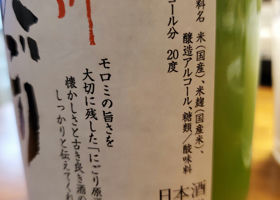 料名 米(国産)、米麹(国産米)、
醸造アルコール、糖類/酸味料
コール分 20度
モロミの旨さを
大切に残した「にごり原
懐かしさと古き良き酒の
しっかりと伝えてくれ
日本酒